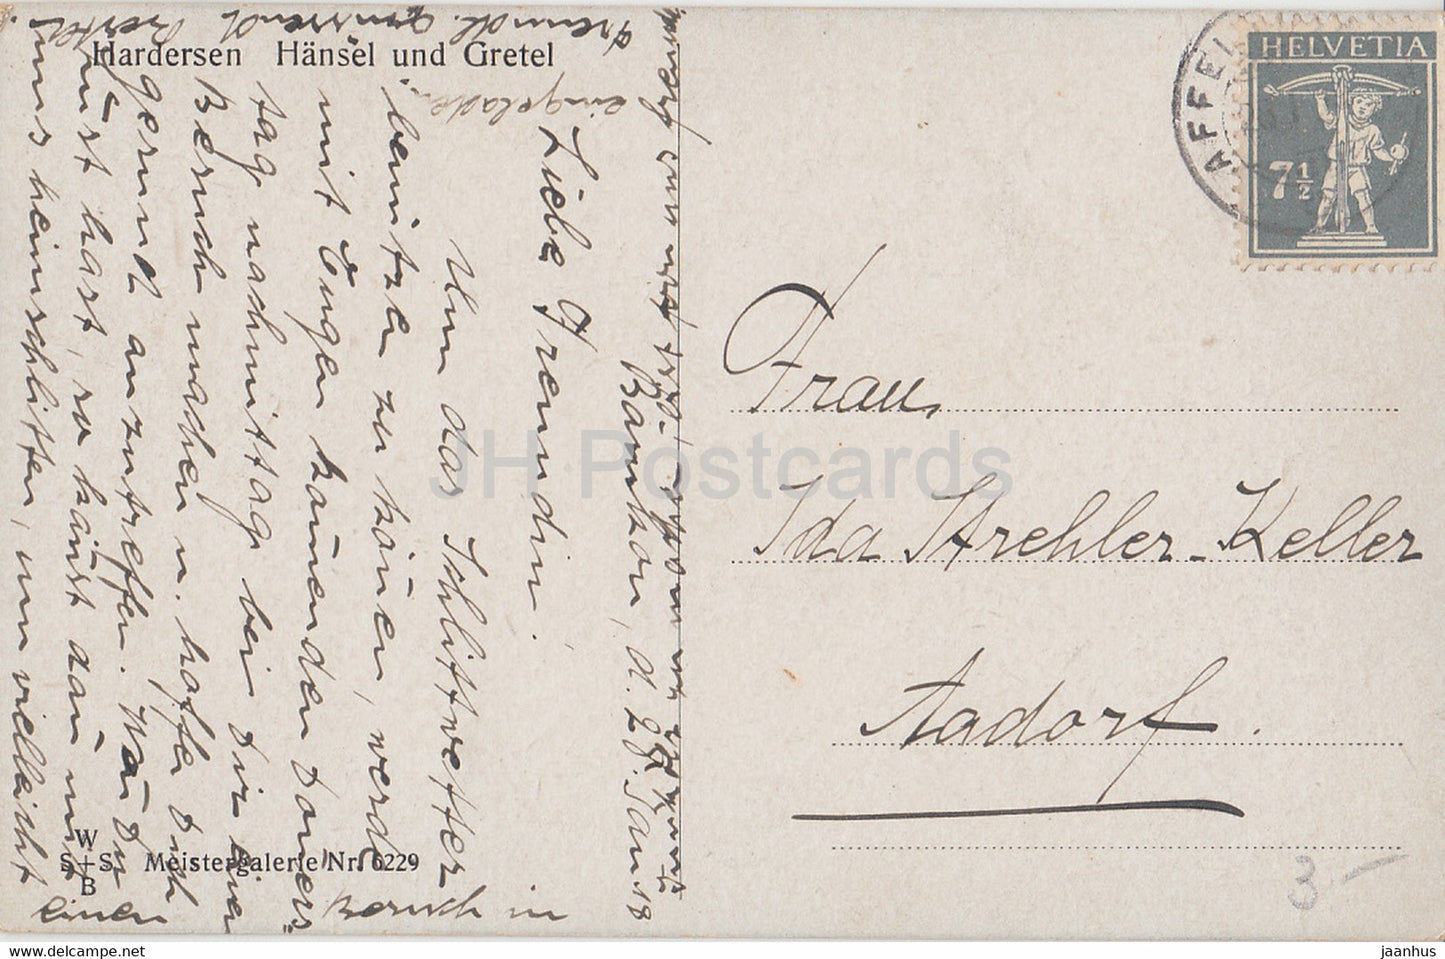 Hardersen Hänsel und Gretel
Bankon, d. 27. Jan 18
Liebe Freundin!
Um das Schlittwetter
benützen zu können, werde
mit Eugen komenden Doners-
tag nachmittag bei Dir einen
Besuch machen u. hoffe Dich
gesund anzutreffen. Wenn Du
Lust hast, so kanst dan mit
uns heimschlitten, um vielleicht
einen Besuch in
eingeladen.
Freundl. grüssend
W
S+S
B
Meistergalerie Nr. 6229
HELVETIA
7½
AFFEL
Frau
Ida Strehler-Keller
Aadorf.
3.-
JH Postcards
www.delcampe.net
jaanhus